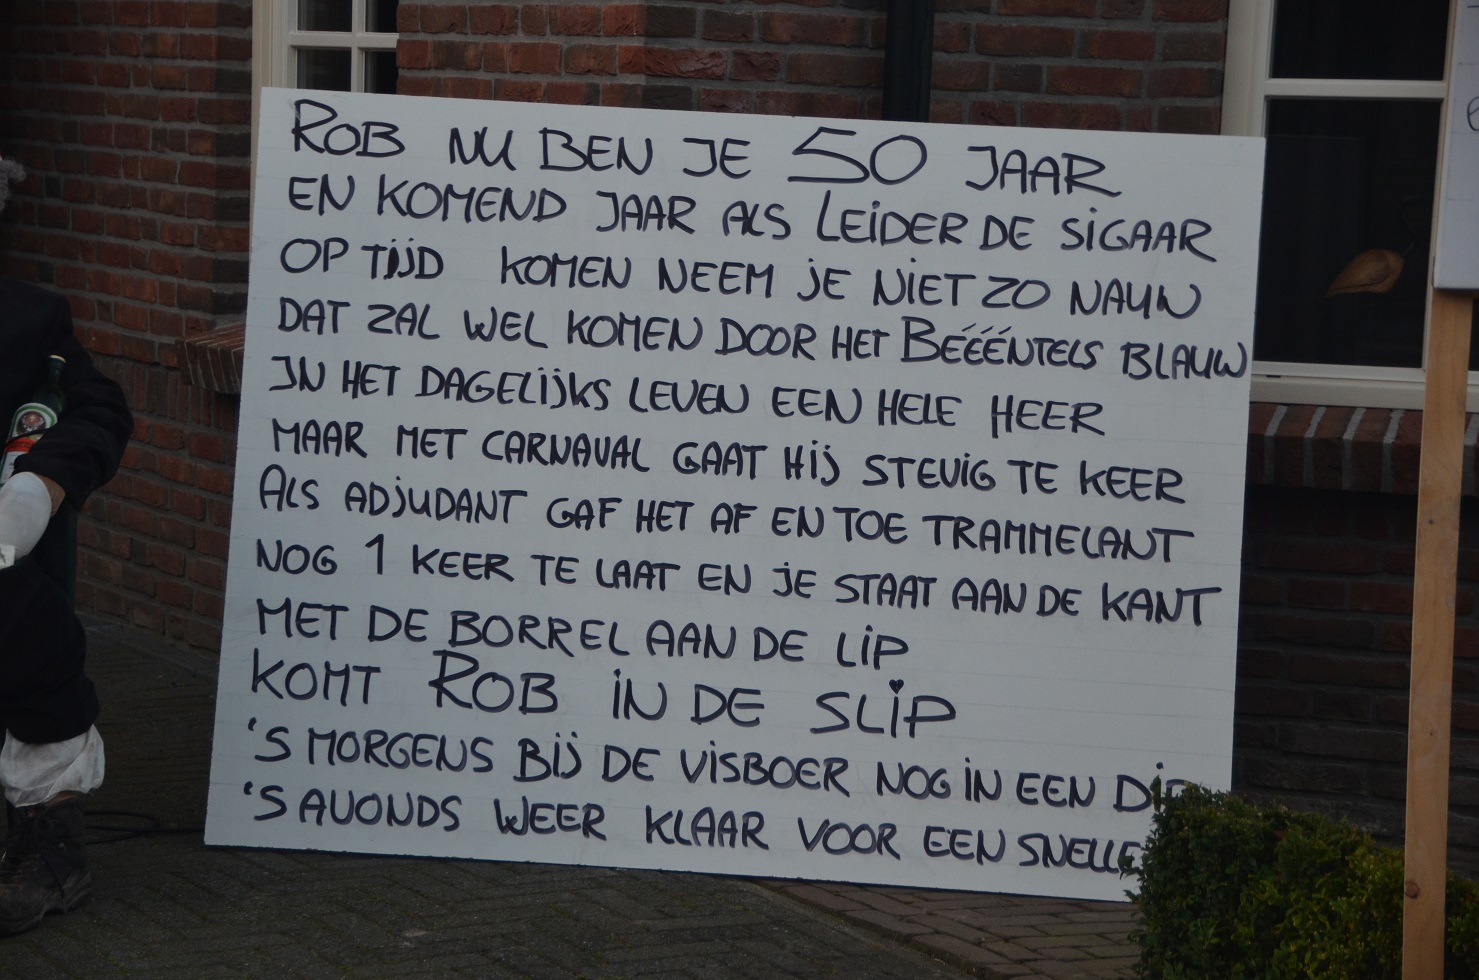 ROB NU BEN JE 50 JAAR
EN KOMEND JAAR ALS LEIDER DE SIGAAR
OP TIJD KOMEN NEEM JE NIET ZO NAUW
DAT ZAL WEL KOMEN DOOR HET BEÉÉÉNTELS BLAUW
IN HET DAGELIJKS LEVEN EEN HELE HEER
MAAR MET CARNAVAL GAAT HIJ STEVIG TE KEER
ALS ADJUDANT GAF HET AF EN TOE TRAMMELANT
NOG 1 KEER TE LAAT EN JE STAAT AAN DE KANT
MET DE BORREL AAN DE LIP
KOMT ROB IN DE SLIP
'S MORGENS BIJ DE VISBOER NOG IN EEN
'S AVONDS WEER KLAAR VOOR EEN SNELLE